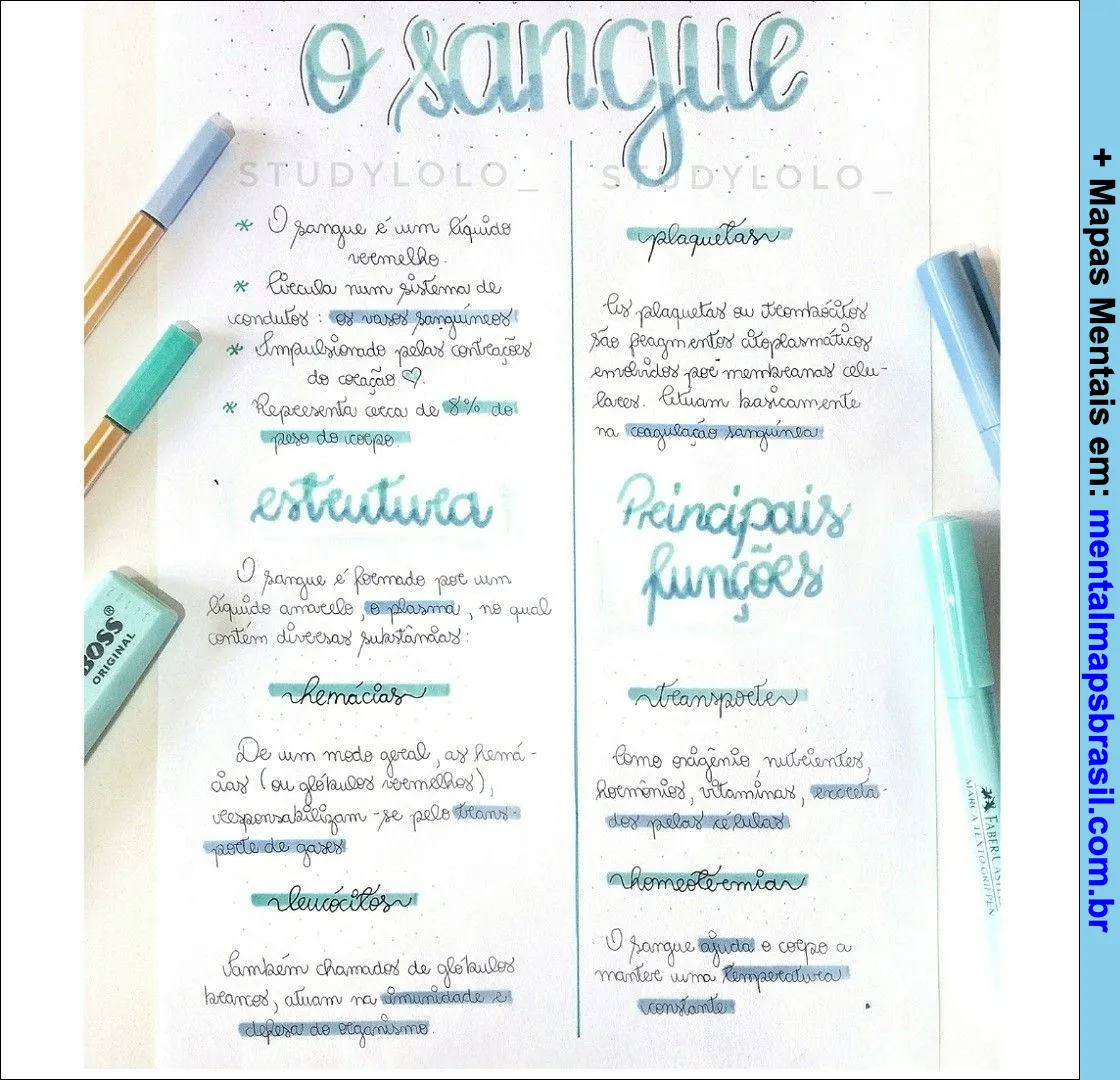 o sangue
STUDYLOLO_
* O sangue é um líquido
vermelho.
* Circula num sistema de
condutos: os vasos sanguíneos
* Impulsionado pelas contrações
do coração ♡.
* Representa cerca de 8% do
peso do corpo.
estrutura
O sangue é formado por um
líquido amarelo, o plasma, no qual
contém diversas substâncias:
hemácias
De um modo geral, as hemá-
cias (ou glóbulos vermelhos),
responsabilizam-se pelo trans-
porte de gases
leucócitos
Também chamados de glóbulos
brancos, atuam na imunidade e
defesa do organismo.
STUDYLOLO_
plaquetas
As plaquetas ou trombócitos
são fragmentos citoplasmáticos
envolvidos por membranas celu-
lares. Atuam basicamente
na coagulação sanguínea
Principais
funções
transporte
Como oxigênio, nutrientes,
hormônios, vitaminas, excreta-
dos pelas células
homeotermia
O sangue ajuda o corpo a
manter uma temperatura
constante
BOSS®
ORIGINAL
FABER CASTELL
MARCA TEXTO GRIFPEN
+ Mapas Mentais em: mentalmapsbrasil.com.br